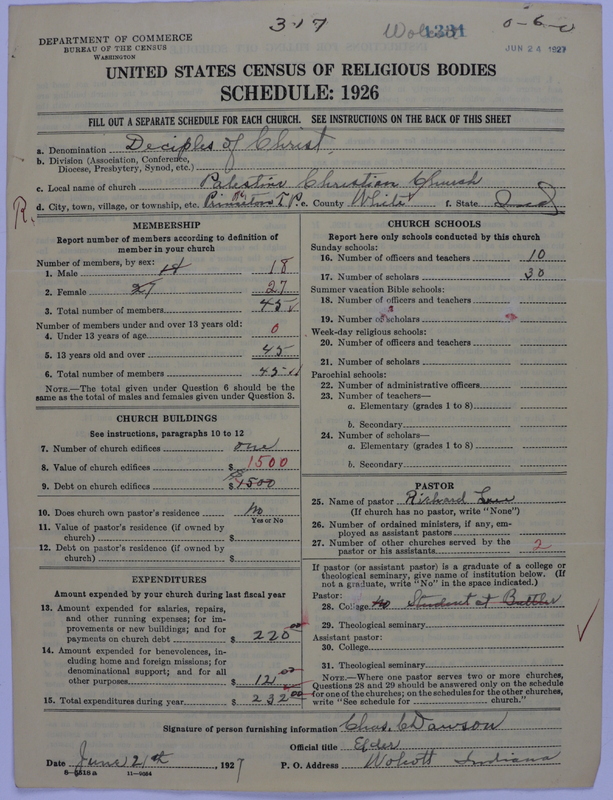 317 Wol 1331 0-6-0
DEPARTMENT OF COMMERCE
BUREAU OF THE CENSUS
WASHINGTON
JUN 24 1927
UNITED STATES CENSUS OF RELIGIOUS BODIES
SCHEDULE: 1926
FILL OUT A SEPARATE SCHEDULE FOR EACH CHURCH. SEE INSTRUCTIONS ON THE BACK OF THIS SHEET
a. Denomination Deciples of Christ
b. Division (Association, Conference,
Diocese, Presbytery, Synod, etc.)
c. Local name of church Palestine Christian Church
R. d. City, town, village, or township, etc. Princeton T.P. e. County White f. State Ind
MEMBERSHIP
Report number of members according to definition of
member in your church
Number of members, by sex:
1. Male 18
2. Female 27 27
3. Total number of members 45
Number of members under and over 13 years old:
4. Under 13 years of age 0
5. 13 years old and over 45
6. Total number of members 45
NOTE.—The total given under Question 6 should be the
same as the total of males and females given under Question 3.
CHURCH BUILDINGS
See instructions, paragraphs 10 to 12
7. Number of church edifices one
8. Value of church edifices $ 1500
9. Debt on church edifices $ 1500
10. Does church own pastor's residence No
Yes or No
11. Value of pastor's residence (if owned by
church) $
12. Debt on pastor's residence (if owned by
church) $
EXPENDITURES
Amount expended by your church during last fiscal year
13. Amount expended for salaries, repairs,
and other running expenses; for im-
provements or new buildings; and for
payments on church debt $ 220 00
14. Amount expended for benevolences, in-
cluding home and foreign missions; for
denominational support; and for all
other purposes $ 12 00
15. Total expenditures during year $ 232 00
CHURCH SCHOOLS
Report here only schools conducted by this church
Sunday schools:
16. Number of officers and teachers 10
17. Number of scholars 30
Summer vacation Bible schools:
18. Number of officers and teachers
19. Number of scholars
Week-day religious schools:
20. Number of officers and teachers
21. Number of scholars
Parochial schools:
22. Number of administrative officers
23. Number of teachers—
a. Elementary (grades 1 to 8)
b. Secondary
24. Number of scholars—
a. Elementary (grades 1 to 8)
b. Secondary
PASTOR
25. Name of pastor Richard
(If church has no pastor, write "None")
26. Number of ordained ministers, if any, em-
ployed as assistant pastors
27. Number of other churches served by the
pastor or his assistants 2
If pastor (or assistant pastor) is a graduate of a college or
theological seminary, give name of institution below. (If
not a graduate, write "No" in the space indicated.)
Pastor:
28. College No Student at Buttler
29. Theological seminary
Assistant pastor:
30. College
31. Theological seminary
NOTE.—Where one pastor serves two or more churches,
Questions 28 and 29 should be answered only on the schedule
for one of the churches; on the schedules for the other churches,
write "See schedule for church."
Signature of person furnishing information Chas. C Dawson
Official title Elder
Date June 21th, 1927 P. O. Address Wolcott Indiana
8-5518a 11-9024